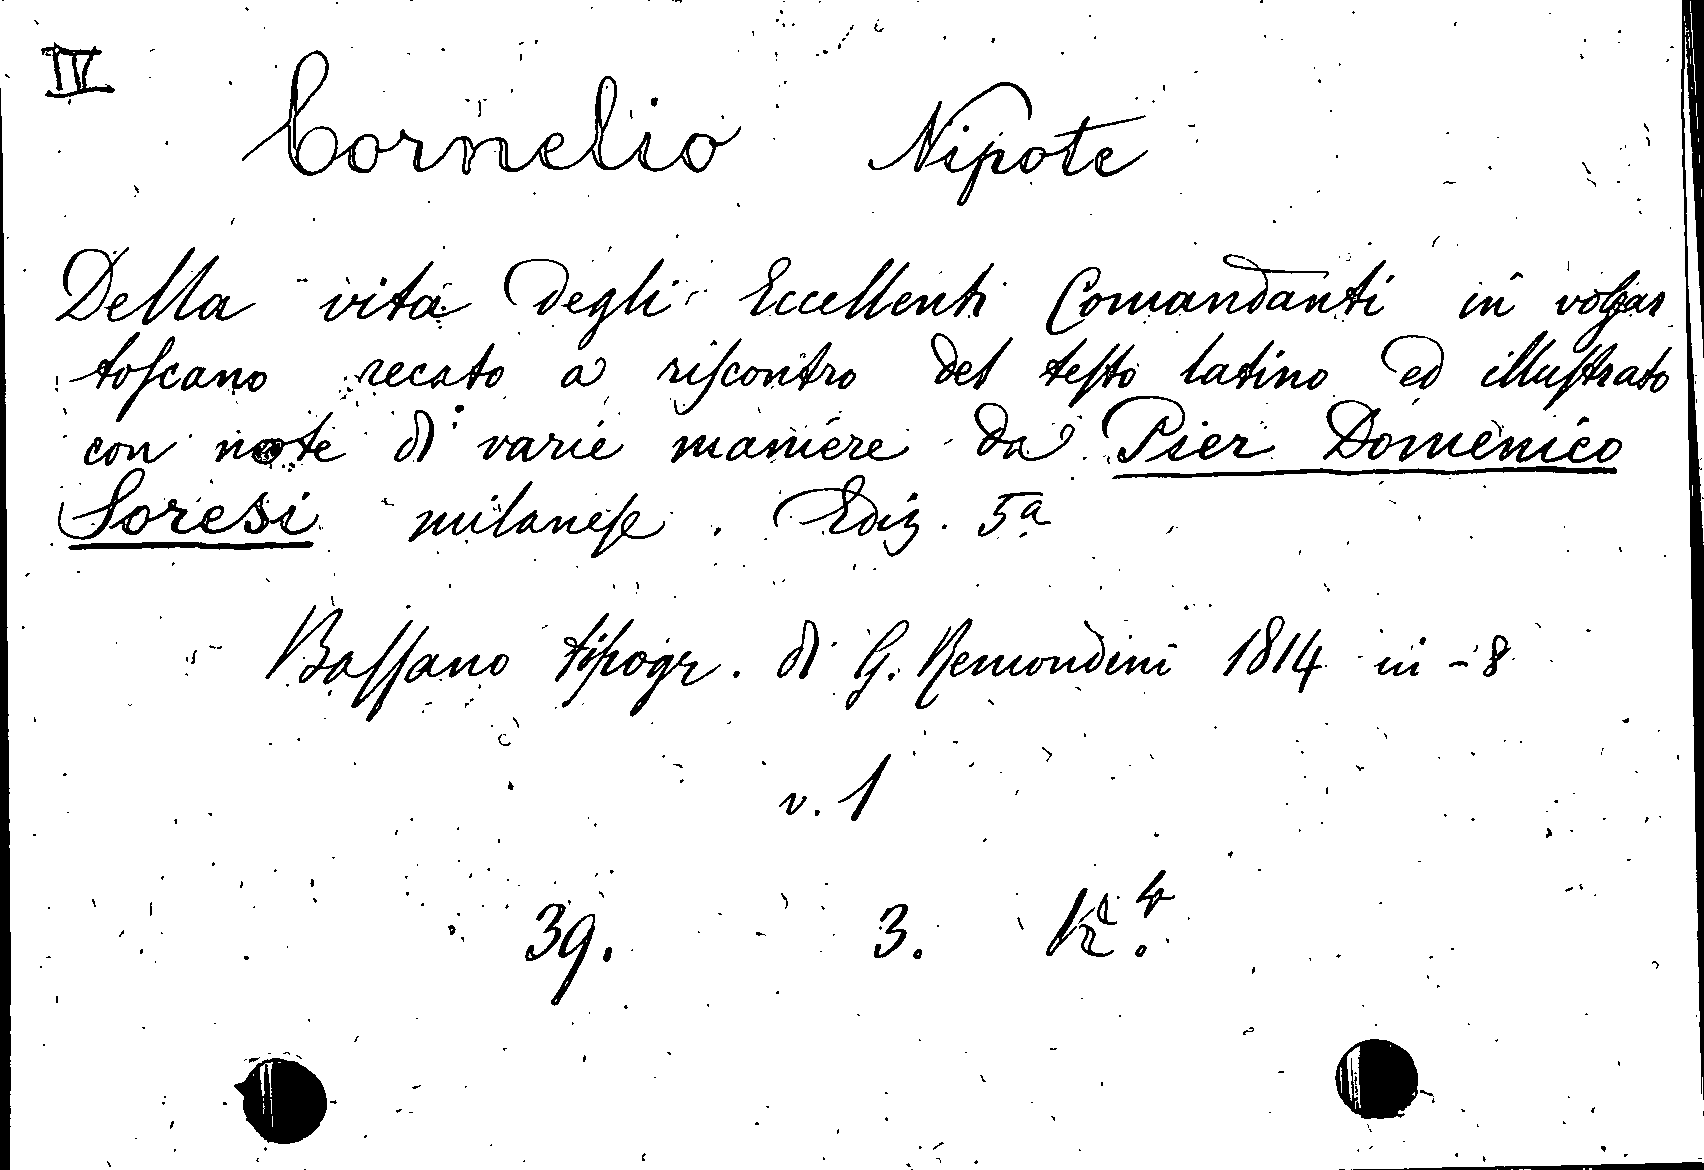 IV
Cornelio Nipote
Della vita degli Eccellenti Comandanti in volgar
toſcano recato a riſcontro del teſto latino ed illuſtrato
con note di varie maniere da Pier Domenico
Soresi milaneſe. Ediz. 5ª
Baſſano tipogr. di G. Remondini 1814 in-8
v. 1
39. 3. K.⁴